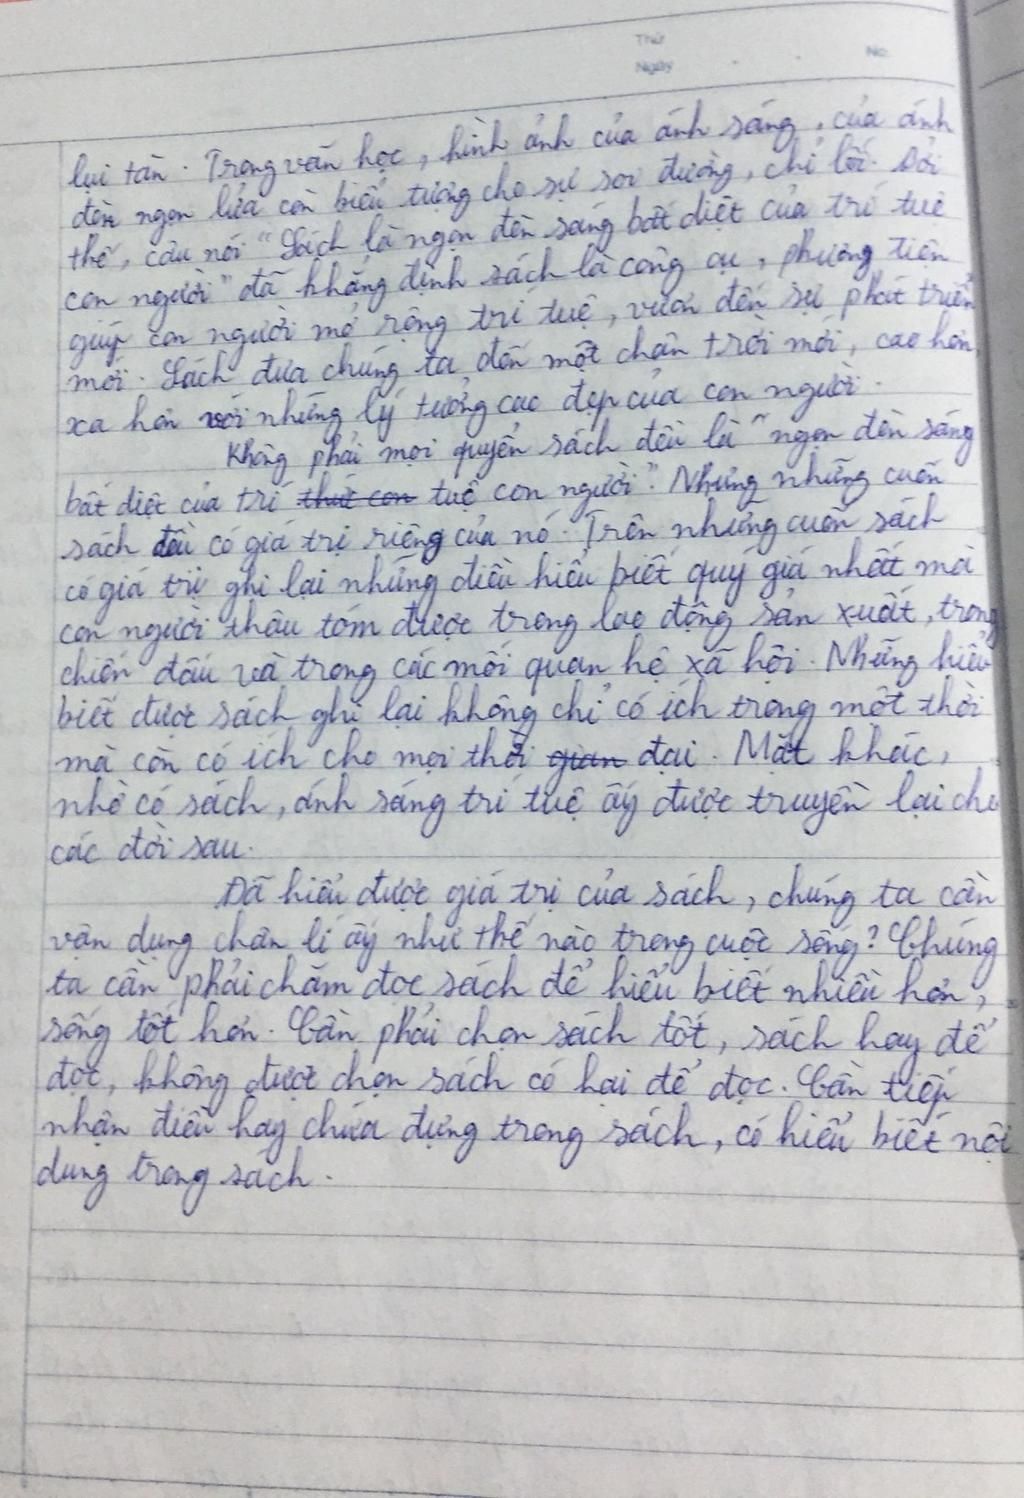 Thứ
No.
Ngày
lụi tàn. Trong văn học, hình ảnh của ánh sáng, của ánh
đèn ngọn lửa còn biểu tượng cho sự soi đường, chỉ lối. Bởi
thế, câu nói "Sách là ngọn đèn sáng bất diệt của trí tuệ
con người" đã khẳng định sách là công cụ, phương tiện
giúp con người mở rộng trí tuệ, vươn đến sự phát triển
mới. Sách đưa chúng ta đến một chân trời mới, cao hơn
xa hơn với những lý tưởng cao đẹp của con người.
Không phải mọi quyển sách đều là "ngọn đèn sáng
bất diệt của trí thứ con tuệ con người". Nhưng những cuốn
sách đều có giá trị riêng của nó. Trên những cuốn sách
có giá trị ghi lại những điều hiểu biết quý giá nhất mà
con người thâu tóm được trong lao động sản xuất, trong
chiến đấu và trong các mối quan hệ xã hội. Những hiểu
biết được sách ghi lại không chỉ có ích trong một thời
mà còn có ích cho mọi thời gian đại. Mặt khác,
nhờ có sách, ánh sáng trí tuệ ấy được truyền lại cho
các đời sau.
Đã hiểu được giá trị của sách, chúng ta cần
vận dụng chân lí ấy như thế nào trong cuộc sống? Chúng
ta cần phải chăm đọc sách để hiểu biết nhiều hơn,
sống tốt hơn. Cần phải chọn sách tốt, sách hay để
đọc, không được chọn sách có hại để đọc. Cần tiếp
nhận điều hay chứa đựng trong sách, có hiểu biết nội
dung trong sách.